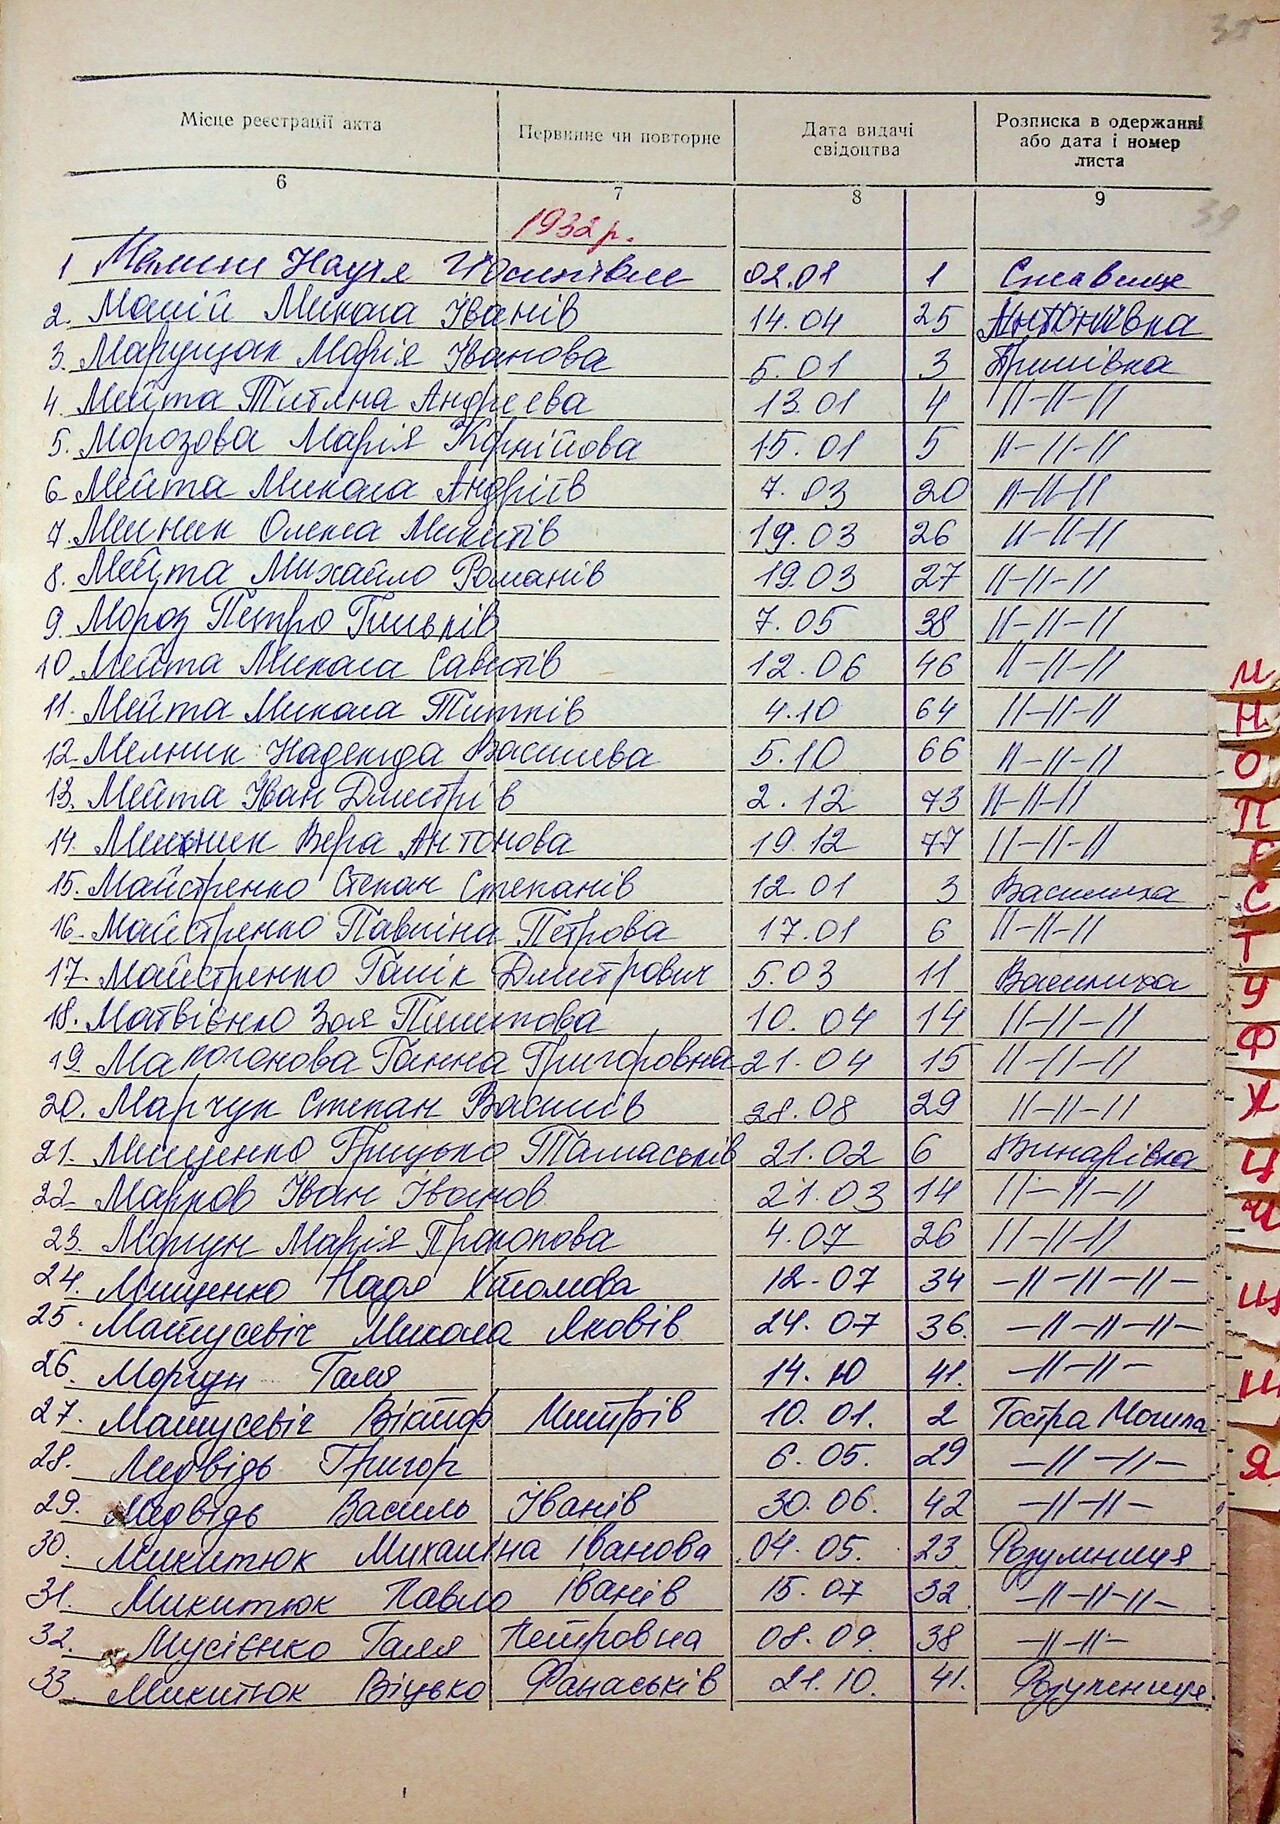 Місце реєстрації акта Первинне чи повторне Дата видачі свідоцтва Розписка в одержанні або дата і номер листа
6 7 8 9
39
1932 р.
1 02.01 1 Ставище
2. Микола Іванів 14.04 25 Антонівка
3. Марущак Марія Іванова 5.01 3
4. Мейта Титяна Андреева 13.01 4 //-//-//
5. Морозова Марія Корнійова 15.01 5 //-//-//
6. Мейта Микола Андріїв 7.03 20 //-//-//
7. Мельник Олекса Микитів 19.03 26 //-//-//
8. Мейта Михайло Романів 19.03 27 //-//-//
9. Мороз Петро 7.05 38 //-//-//
10. Мейта Микола Саватів 12.06 46 //-//-//
11. Мейта Микола Титків 4.10 64 //-//-//
12. Мелник Надежда Василева 5.10 66 //-//-//
13. Мейта Іван Дмитрів 2.12 73 //-//-//
14. Мельник Вера Антонова 19.12 77 //-//-//
15. Майстренко Степан Степанів 12.01 3 Василиха
16. Майстренко Павліна Петрова 17.01 6 //-//-//
17. Майстренко Дмитрович 5.03 11 Василиха
18. Матвієнко Зоя Пилипова 10.04 14 //-//-//
19. Макогонова Ганна Григоровна 21 04 15 //-//-//
20. Марчук Степан Василів 28.08 29 //-//-//
21. Мищенко Грицько Тамаськів 21.02 6 Винарівка
22. Марков Іван Іванов 21.03 14 //-//-//
23. Моргун Марія Прокопова 4.07 26 //-//-//
24. Мищенко Надя 12-07 34 -//-//-//-
25. Матусевіч Микола Яковів 24.07 36. -//-//-//-
26. Моргун Галя 14.10 41. -//-//-
27. Матусевіч Віктор Митрів 10.01. 2 Гостра Могила
28. Медвідь Григор 6.05. 29 -//-//-
29. Медвідь Василь Іванів 30.06. 42 -//-//-
30. Микитюк Михаліна Іванова 04.05. 23 Розумниця
31. Микитюк Павло Іванів 15.07 32. -//-//-//-
32. Мусієнко Галя Петровна 08.09. 38 -//-//-
33. Микитюк Віцько Фанаськів 21.10. 41. Розумниця
М
Н
О
П
С
Т
У
Ф
Х
Ц
Ч
Щ
Ш
Я